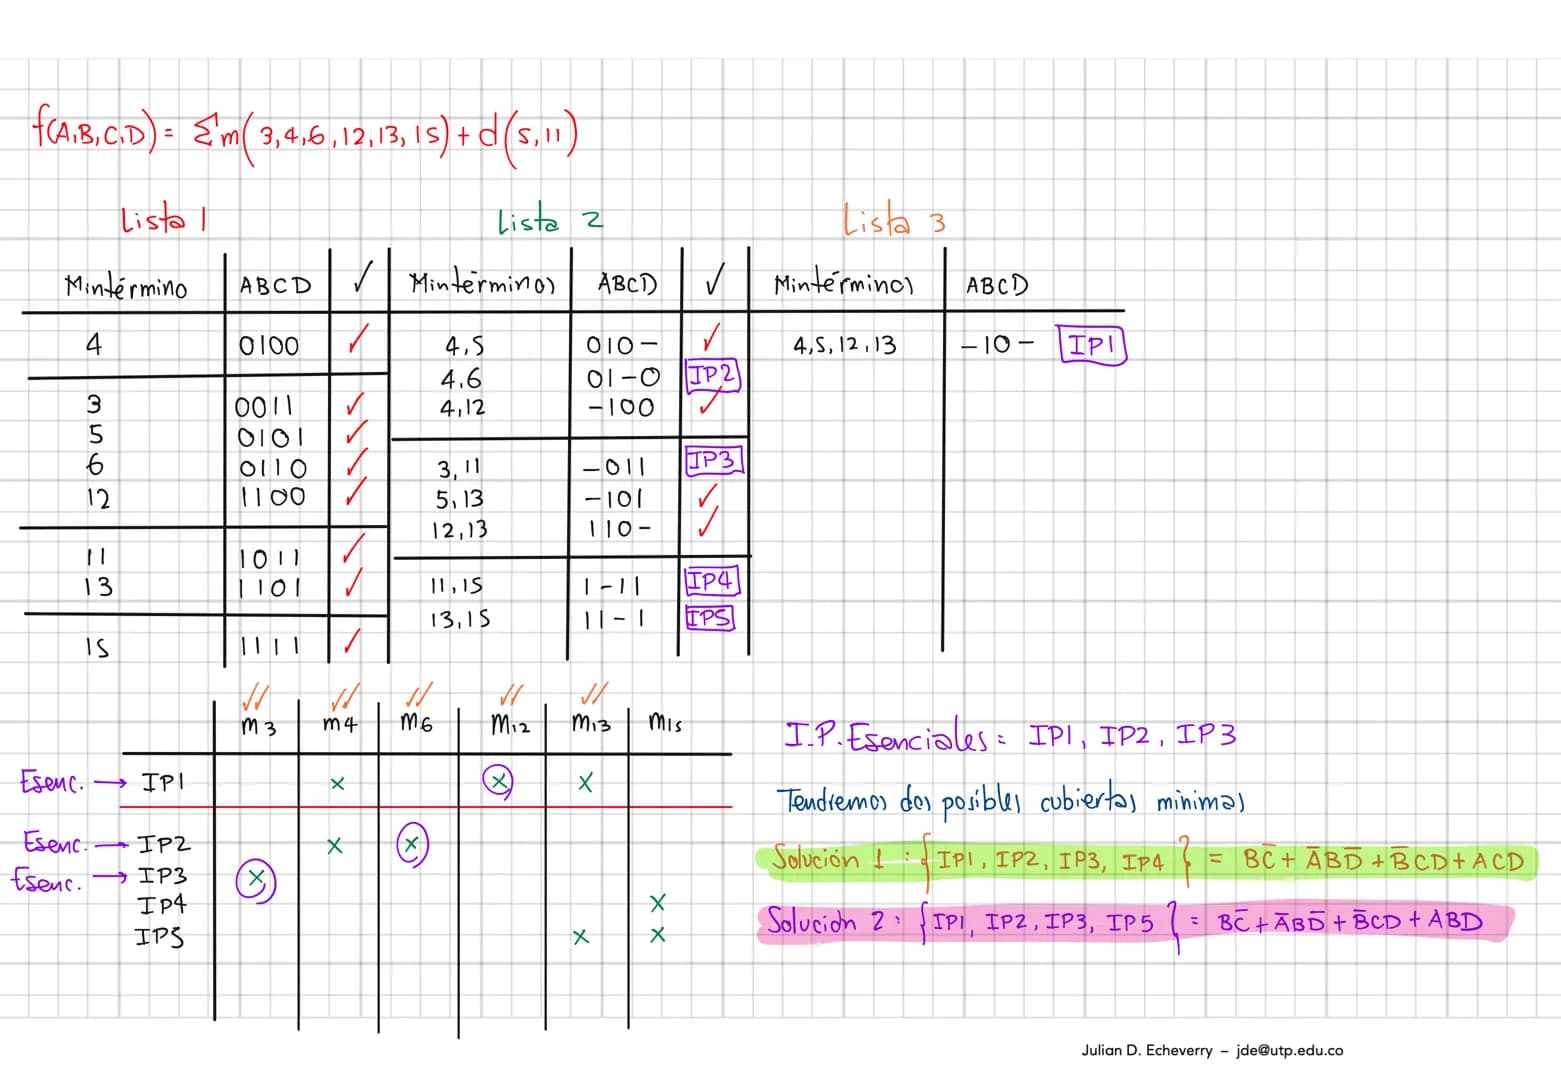 f(A,B,C,D) = Σm(3,4,6,12,13,15) + d(5,11)
Lista 1 Lista 2 Lista 3
Mintérmino ABCD ✓ Mintérminos ABCD ✓ Mintérminos ABCD
4 0100 ✓ 4,5 010- ✓ 4,5,12,13 -10- IP1
4,6 01-0 IP2
3 0011 ✓ 4,12 -100 ✓
5 0101 ✓
6 0110 ✓ 3,11 -011 IP3
12 1100 ✓ 5,13 -101 ✓
12,13 110- ✓
11 1011 ✓
13 1101 ✓ 11,15 1-11 IP4
13,15 11-1 IP5
15 1111 ✓
✓✓ ✓✓ ✓✓ ✓✓ ✓✓
m3 m4 m6 m12 m13 m15
Esenc. → IP1 x x x
Esenc. → IP2 x x
Esenc. → IP3 x
IP4 x
IP5 x x
I.P. Esenciales: IP1, IP2, IP3
Tendremos dos posibles cubiertas minimas
Solución 1 : {IP1, IP2, IP3, IP4} = BC̅ + A̅BD̅ + B̅CD + ACD
Solución 2 : {IP1, IP2, IP3, IP5} = BC̅ + A̅BD̅ + B̅CD + ABD
Julian D. Echeverry – jde@utp.edu.co